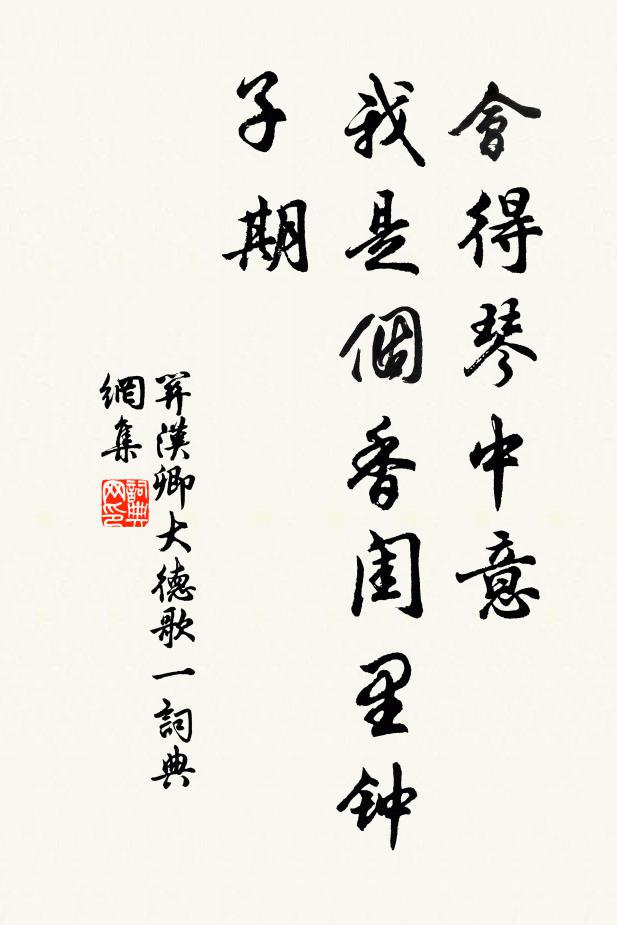 會得琴中意
我是個香閨里钟
子期
関漢卿大德歌一詞典
網集
詞典
网印